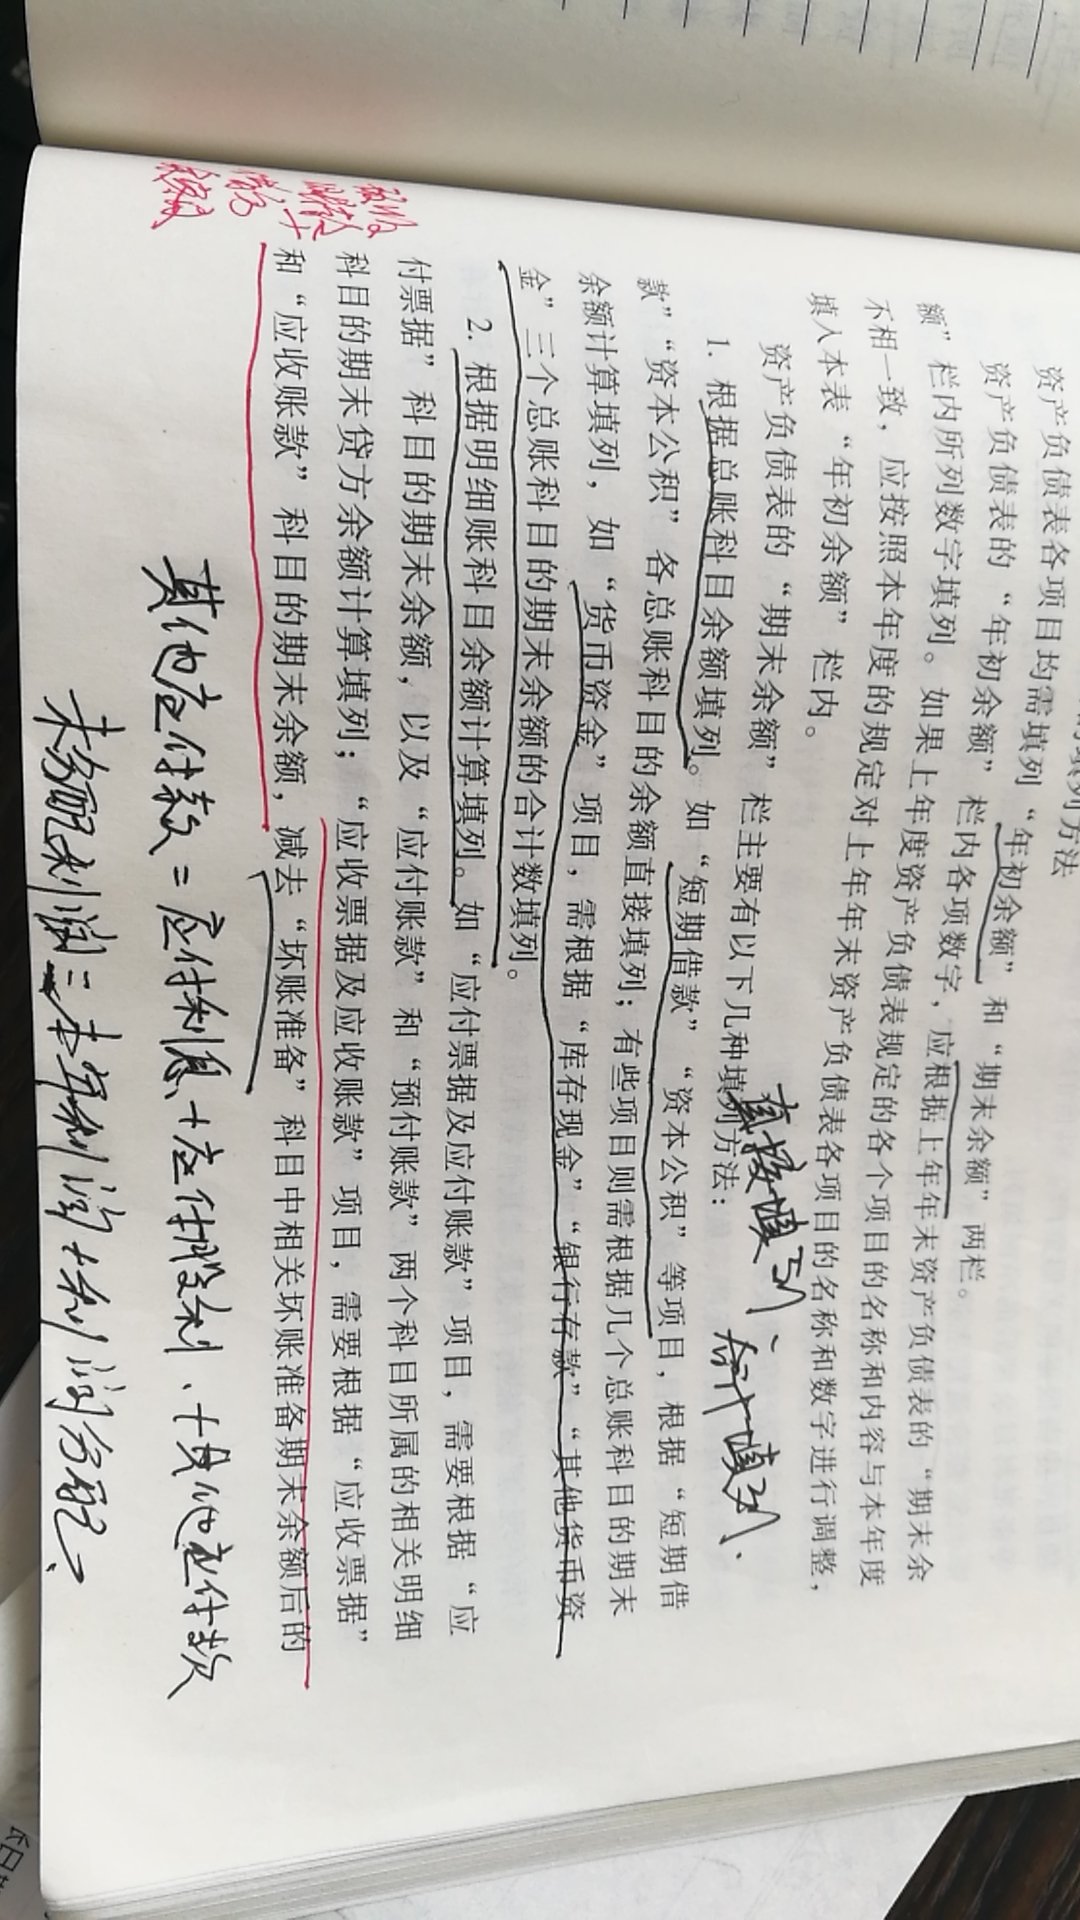 的填列方法
资产负债表各项目均需填列“年初余额”和“期末余额”两栏。
资产负债表的“年初余额”栏内各项数字，应根据上年年末资产负债表的“期末余
额”栏内所列数字填列。如果上年度资产负债表规定的各个项目的名称和内容与本年度
不相一致，应按照本年度的规定对上年年末资产负债表各项目的名称和数字进行调整，
填入本表“年初余额”栏内。
资产负债表的“期末余额”栏主要有以下几种填列方法：
直接填列、合计填列.
1. 根据总账科目余额填列。如“短期借款”“资本公积”等项目，根据“短期借
款”“资本公积”各总账科目的余额直接填列；有些项目则需根据几个总账科目的期末
余额计算填列，如“货币资金”项目，需根据“库存现金”“银行存款”“其他货币资
金”三个总账科目的期末余额的合计数填列。
2. 根据明细账科目余额计算填列。如“应付票据及应付账款”项目，需要根据“应
付票据”科目的期末余额，以及“应付账款”和“预付账款”两个科目所属的相关明细
科目的期末贷方余额计算填列；“应收票据及应收账款”项目，需要根据“应收票据”
和“应收账款”科目的期末余额，减去“坏账准备”科目中相关坏账准备期末余额后的
其他应付款=应付利息+应付股利.+其他应付款
未分配利润=本年利润+利润分配、